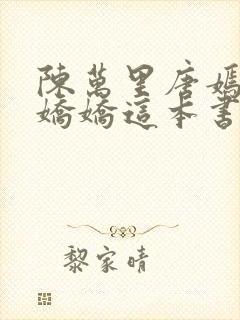 陳萬里唐嫣
嬌嬌這本書
黎家晴